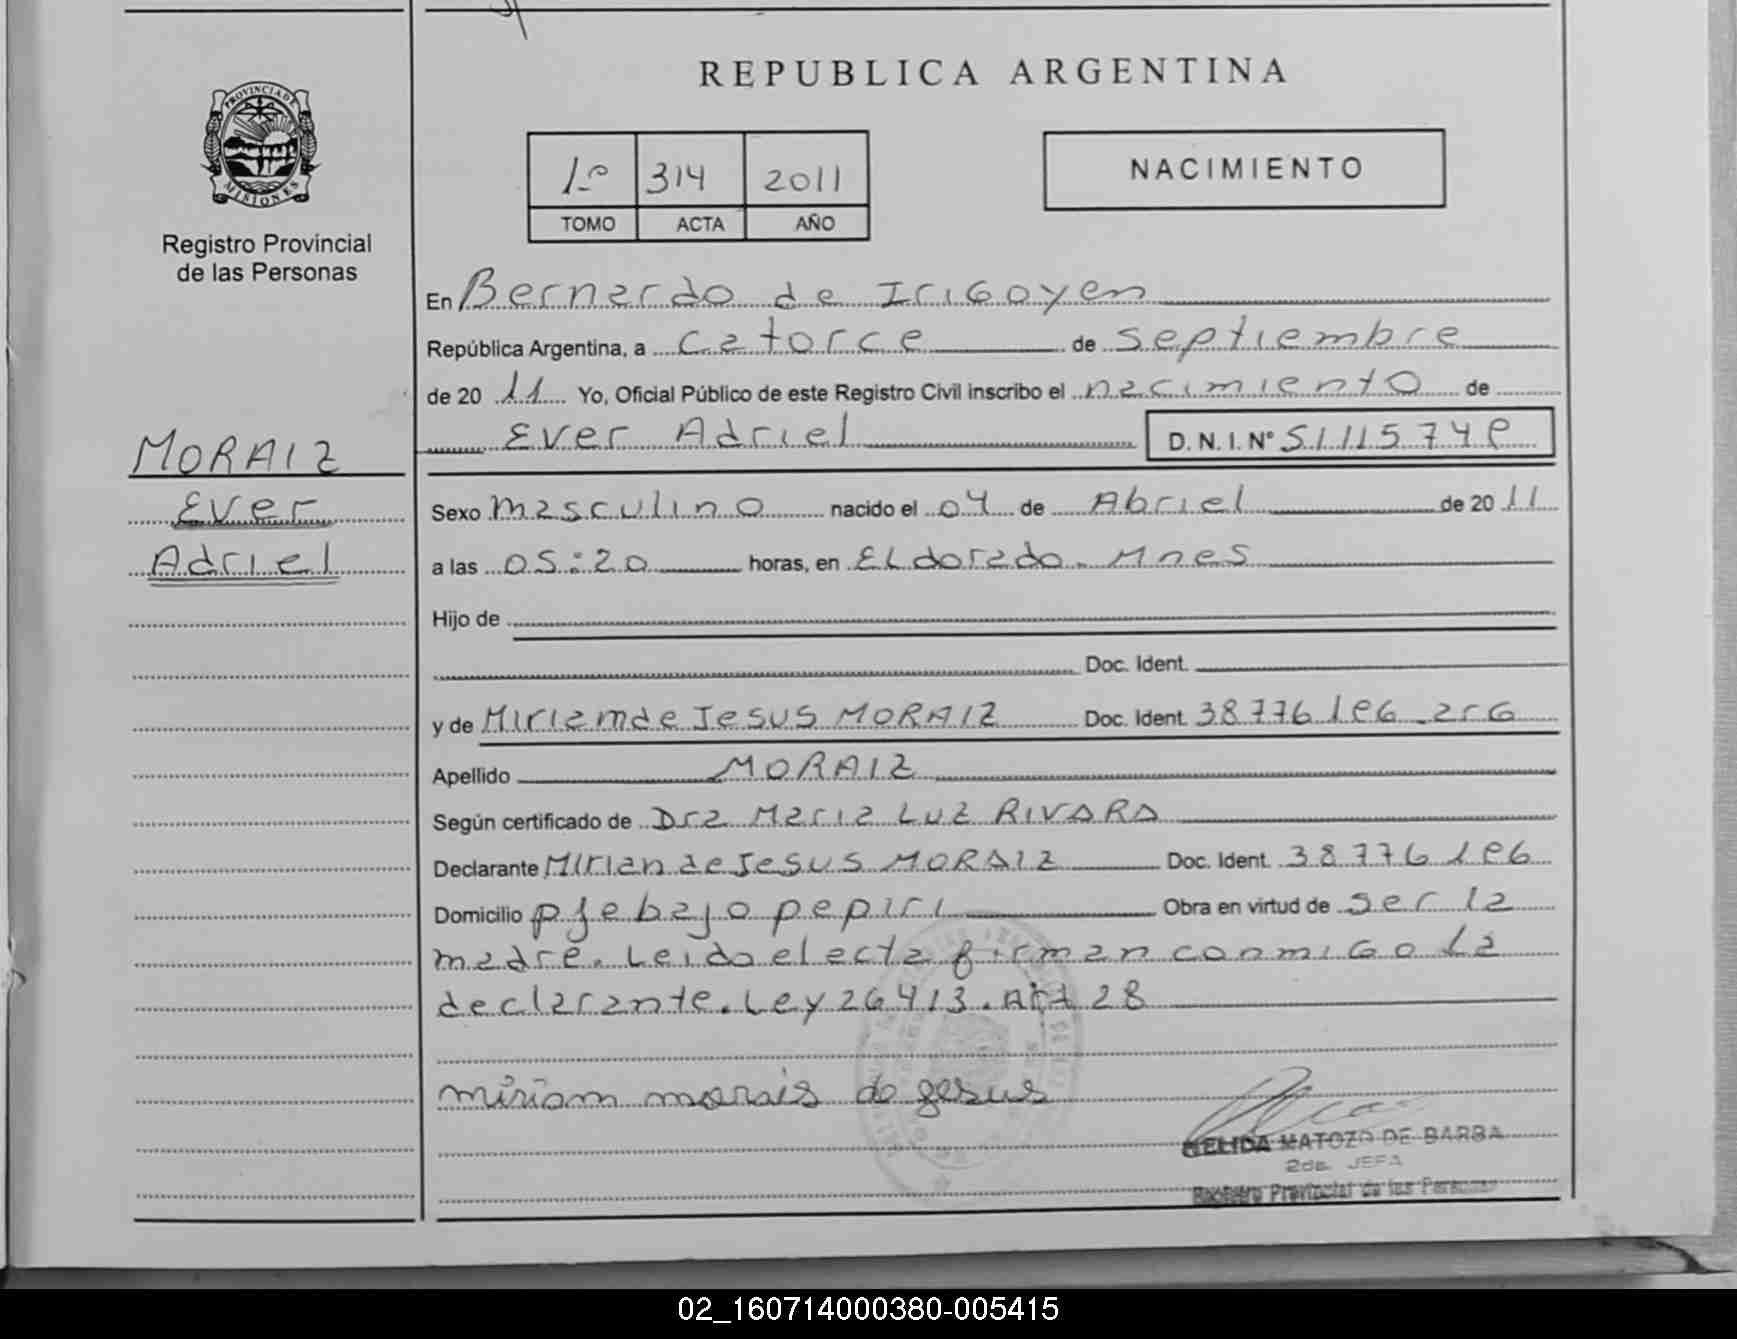 REPUBLICA ARGENTINA
PROVINCIA DE MISIONES
Registro Provincial
de las Personas
1º 314 2011
TOMO ACTA AÑO
NACIMIENTO
En Bernardo de Irigoyen
República Argentina, a catorce de septiembre
de 20 11 Yo, Oficial Público de este Registro Civil inscribo el nacimiento de
Ever Adriel D.N.I. Nº
MORAIZ
Ever
Adriel
Sexo masculino nacido el 04 de Abriel de 20 11
a las 05:20 horas, en ELdorado. Mnes
Hijo de
Doc. Ident.
y de Miriam de Jesus MORAIZ Doc. Ident.
Apellido MORAIZ
Según certificado de Dra Maria Luz RIVARA
Declarante Mirian de Jesus MORAIZ Doc. Ident.
Domicilio pje bajo pepiri Obra en virtud de ser la
madre. Leido el acta firman conmigo La
declarante. Ley 26413. Art 28
miriam morais de gesus
NELIDA MATOZO DE BARBA
2da. JEFA
Registro Provincial de las Personas
02_160714000380-005415